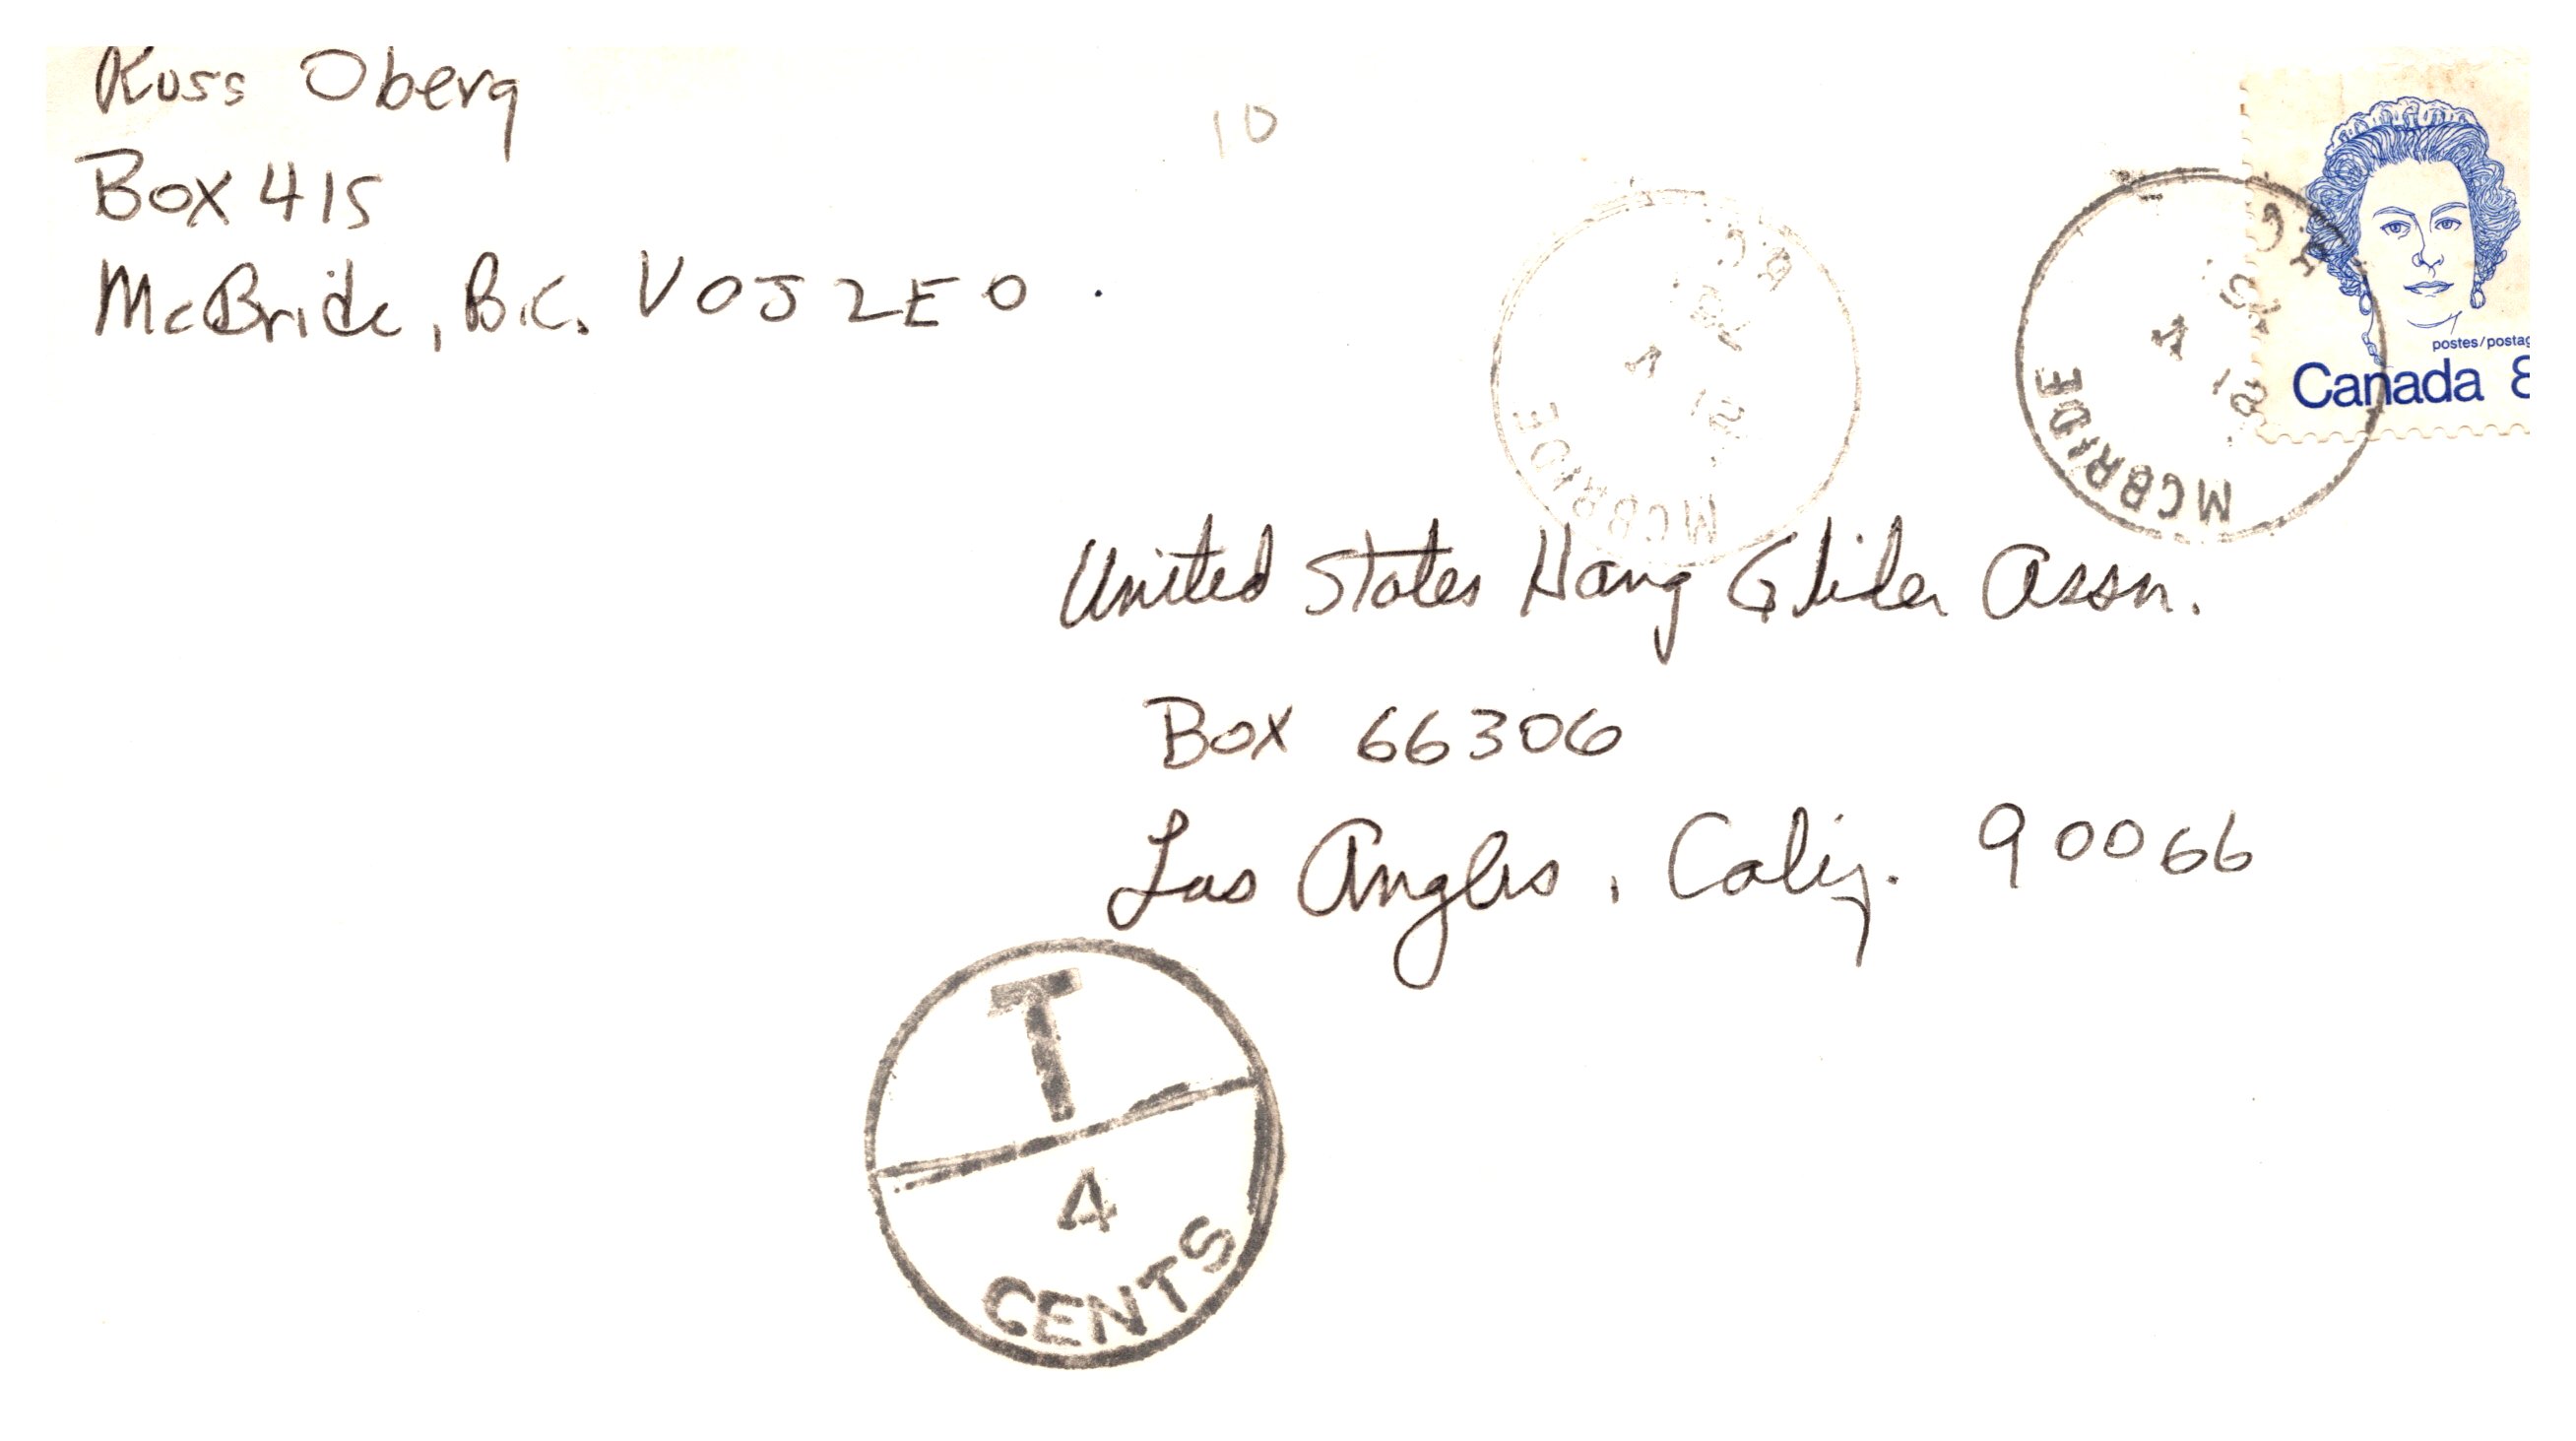 Russ Oberg
Box 415
McBride, B.C. V0J 2E0.
10
postes/postag
Canada 8
MCBRIDE
B.C.
MCBRIDE
B.C.
United States Hang Glider Assn.
Box 66306
Los Angles, Calif. 90066
T
4
CENTS